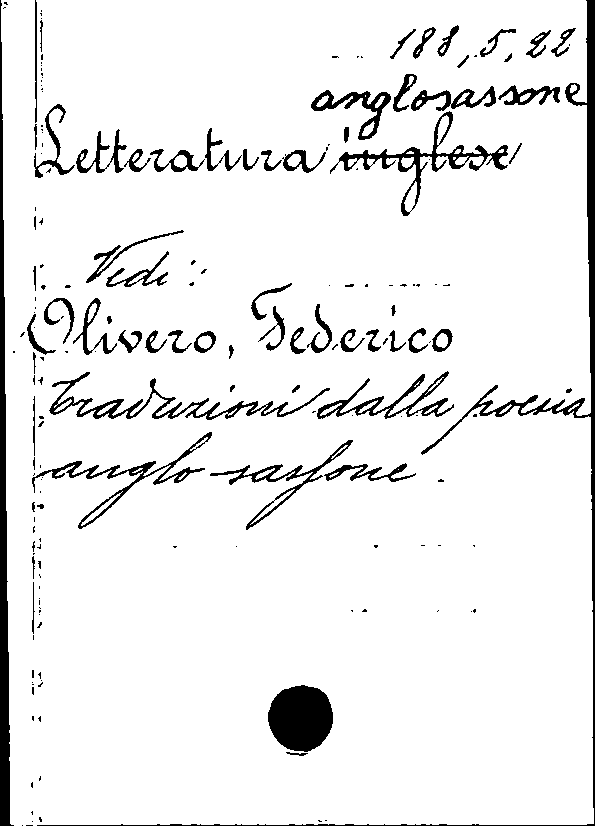 188, 5, 22
anglosassone
Letteratura inglese
Vedi:
Olivero, Federico
Traduzioni dalla poesia
anglo-sassone.